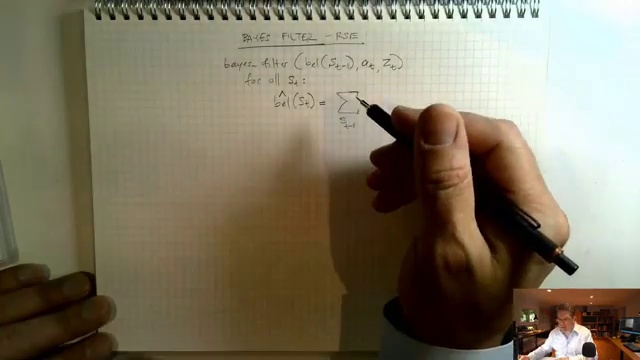 BAYES FILTER - RSE
bayes-filter (bel(St-1), at, Zt)
for all St:
b̂el(St) = Σ
St-1